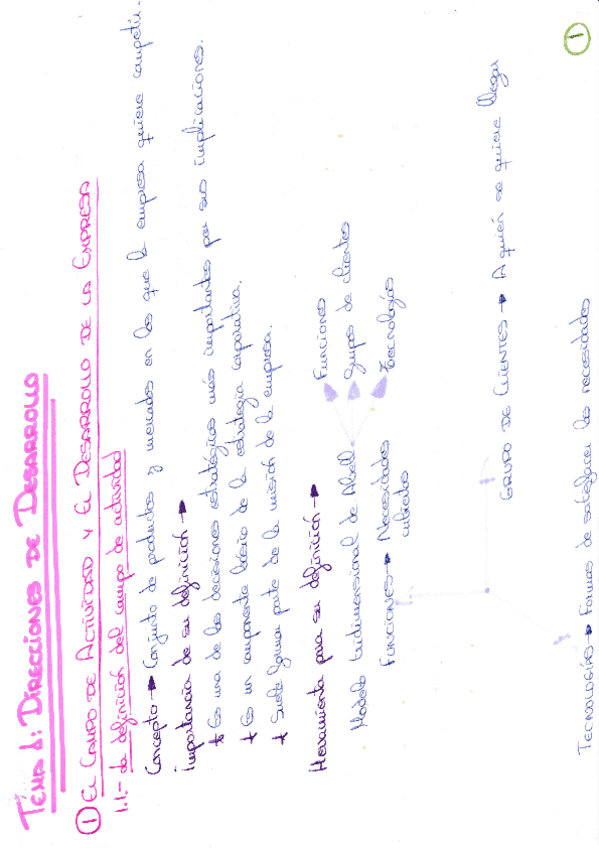 TEMA 6: DIRECCIONES DE DESARROLLO
① EL CAMPO DE ACTIVIDAD Y EL DESARROLLO DE LA EMPRESA
1.1.- La definición del campo de actividad
Concepto → Conjunto de productos y mercados en los que la empresa quiere competir.
Importancia de su definición →
* Es una de las decisiones estratégicas más importantes por sus implicaciones.
* Es un componente básico de la estrategia corporativa.
* Suele formar parte de la misión de la empresa.
Herramienta para su definición →
Modelo tridimensional de Abell
Funciones
Grupos de clientes
Tecnologías
FUNCIONES → Necesidades
cubiertas
GRUPO DE CLIENTES → A quién se quiere llegar
TECNOLOGÍAS → Formas de satisfacer las necesidades
1